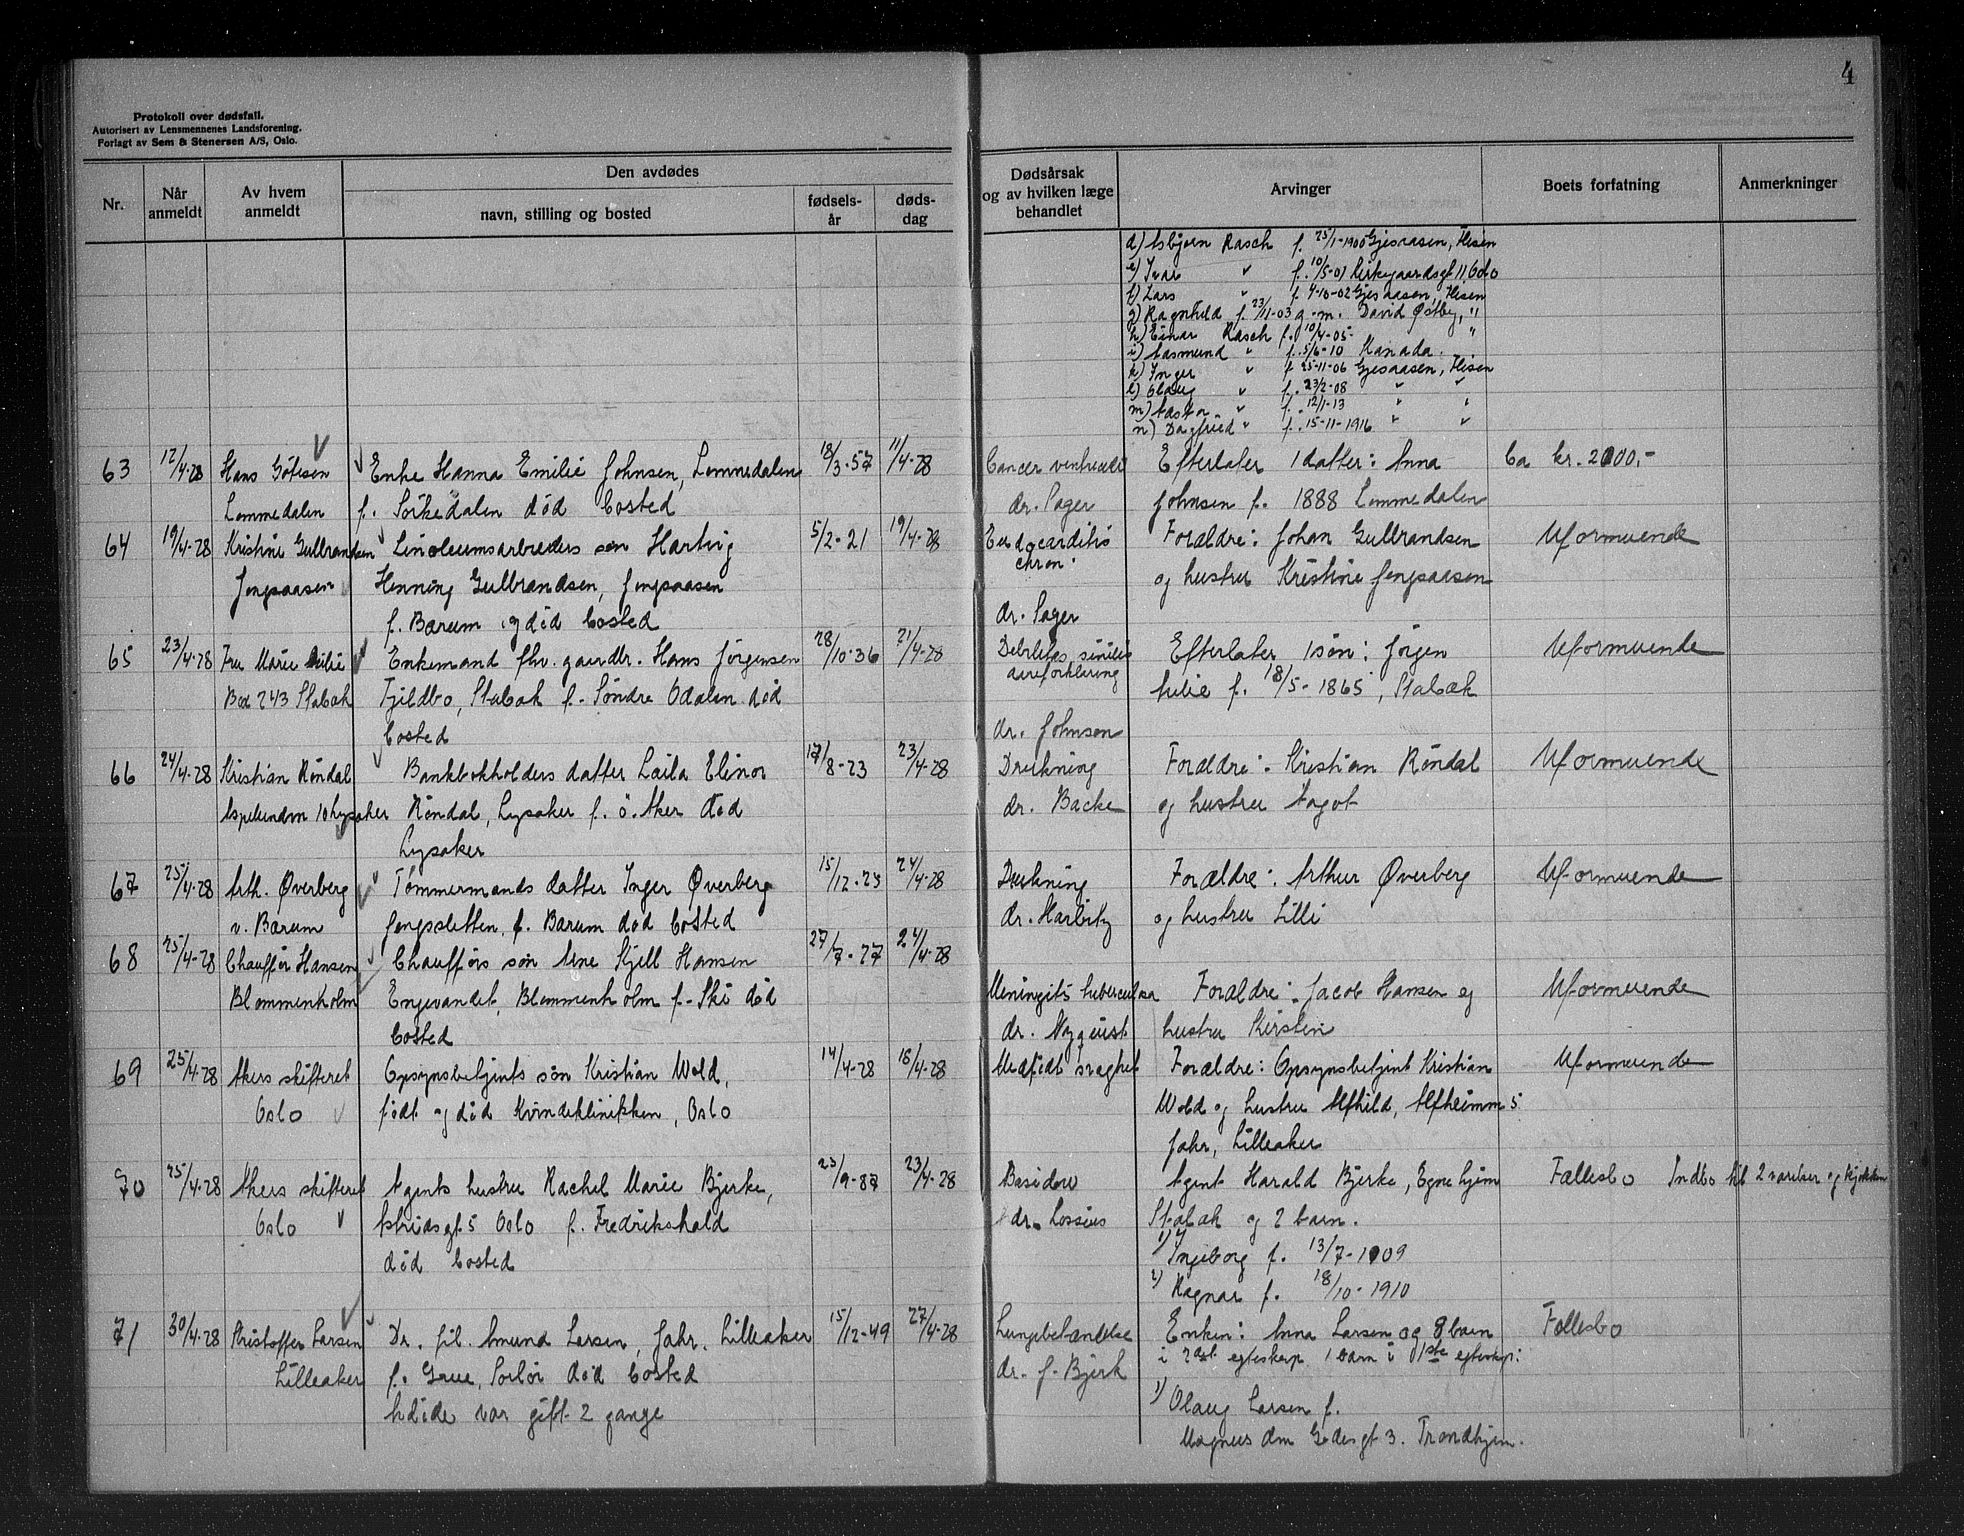 4
Protokoll over dødsfall.
Autorisert av Lensmennenes Landsforening.
Forlagt av Sem & Stenersen A/S, Oslo.
Nr.
Når anmeldt
Av hvem anmeldt
Den avdødes
navn, stilling og bosted
fødsels-år
døds-dag
Dødsårsak og av hvilken læge behandlet
Arvinger
Boets forfatning
Anmerkninger
d) Asbjørn Rasch f. 25/1-1900 Gjesaasen, Hisen
e) Ivar " f. 10/5-01 Kirkegaardsgt 11 Oslo
f) Lars " f. 4-10-02 Gjesaasen, Hisen
g) Ragnhild f. 23/11-03 g. m. David Østby, "
h) Einar Rasch f. 10/4-05 "
i) Aasmund " f. 5/6-10 Kanada.
k) Inger " f 25-11-06 Gjesaasen, Hisen
l) Olaug " f. 23/2-08 " "
m) Aasta " f. 12/1-13 " "
n) Dagfried " f. 15-11-1916 " "
63 12/4-28 Hans Götesen Enke Hanna Emilie Johnsen, Lommedalen 18/3-57 11/4-28 Cancer ventriculi Efterlater 1 datter: Anna Ca kr. 2000,-
Lommedalen f. Sörkedalen död bosted dr. Sager Johnsen f. 1888 Lommedalen
64 19/4-28 Kristine Gulbrandsen Linoleumsarbeiders sön Hartvig 5/2-21 19/4-28 Endocarditis Foræeldre: Johan Gulbrandsen Uformuende
Jongsaasen Henning Gulbrandsen, Jongsaasen chron. og hustru Kristine Jongsaasen
f. Bærum og död bosted dr. Sager
65 23/4-28 Fru Marie Julie Enkemand fhv. gaardbr. Hans Jörgensen 28/10-36 21/4-28 Debilitas sinilis Efterlater 1 sön: Jörgen Uformuende
Box 243 Stabæk Fjeldbo, Stabæk f. Söndre Odalen död aareforkalkning Julie f. 18/5-1865, Stabæk
bosted dr. Johnsen
66 24/4-28 Kristian Röndal Bankbokholders datter Laila Elinor 17/8-23 23/4-28 Drukning Forældre: Kristian Röndal Uformuende
10 Lysaker Röndal, Lysaker f. ö. Aker död dr. Backe og hustru Aagot
Lysaker
67 25/4-28 Arth. Øverberg Tömmermands datter Inger Øverberg 15/12-23 24/4-28 Drukning Forældre: Arthur Øverberg Uformuende
v. Bærum Jongssletten, f. Bærum död bosted dr. Harbitz og hustru Lilli
68 25/4-28 Chaufför Hansen Chaufförs sön Arne Kjell Hansen 27/7-27 24/4-28
Blommenholm Engervandet, Blommenholm f. Ski död Meningitis tuberculosa Forældre: Jacob Hansen og Uformuende
bosted dr. Nyquist hustru Kirsten
69 25/4-28 Akers skifteret Opsynsbetjents sön Kristian Wold, 14/4-28 16/4-28 Medfödt svaghet Forældre: Opsynsbetjent Kristian Uformuende
Oslo född og död Kvindeklinikken, Oslo Wold og hustru Alfhild, Alfheimm 5
Jahr, Lilleaker
70 25/4-28 Akers skifteret Agents hustru Rachel Marie Bjerke, 23/9-87 23/4-28 Basidow Agent Harald Bjerke, Egne hjem Fællesbo Indbo til 2 værelser og kjökken
Oslo Astridsgt 5 Oslo f. Fredrikshald dr. Lossius Stabæk og 2 barn.
död bosted 1) Ingeborg f. 13/7-1909
2) Ragnar f. 18/10-1910
71 30/4-28 Kristoffer Larsen Dr. fil. Amund Larsen, Jahr, Lilleaker 15/12-49 27/4-28 Lungebetændelse Enken: Anna Larsen og 8 barn Fællesbo
Lilleaker f. Grue, Solör död bosted dr. J. Bjerk i 2det egteskap 1 barn i 1ste egteskap:
Avdöde var gift 2 gange 1) Olaug Larsen f.
Magnus den Godes gt 3. Trondhjem.